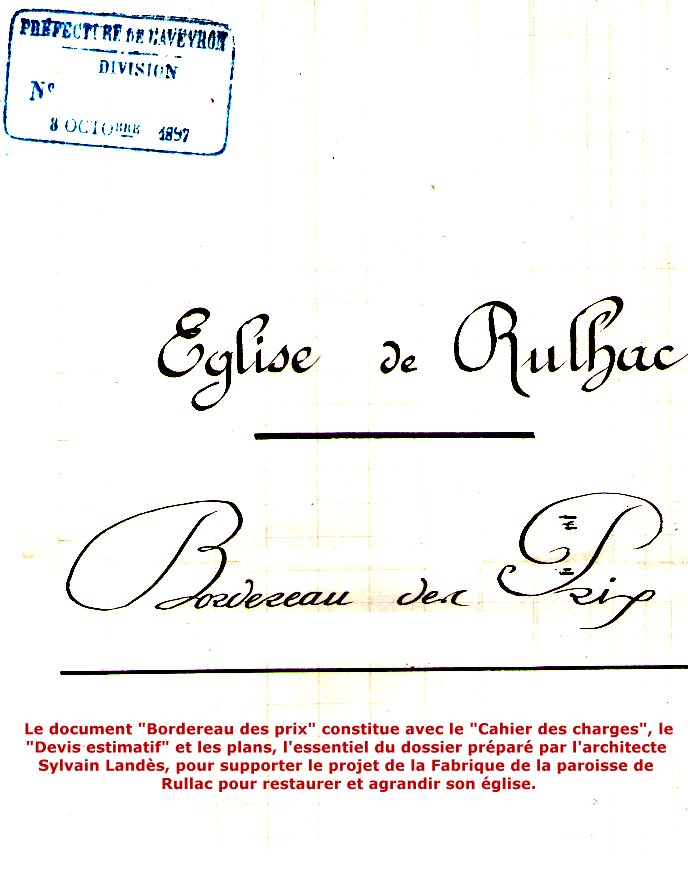 PRÉFECTURE DE L'AVEYRON
DIVISION
N°
8 OCTOBRE 1897
Eglise de Rulhac
Bordereau des Prix
Le document "Bordereau des prix" constitue avec le "Cahier des charges", le
"Devis estimatif" et les plans, l'essentiel du dossier préparé par l'architecte
Sylvain Landès, pour supporter le projet de la Fabrique de la paroisse de
Rullac pour restaurer et agrandir son église.